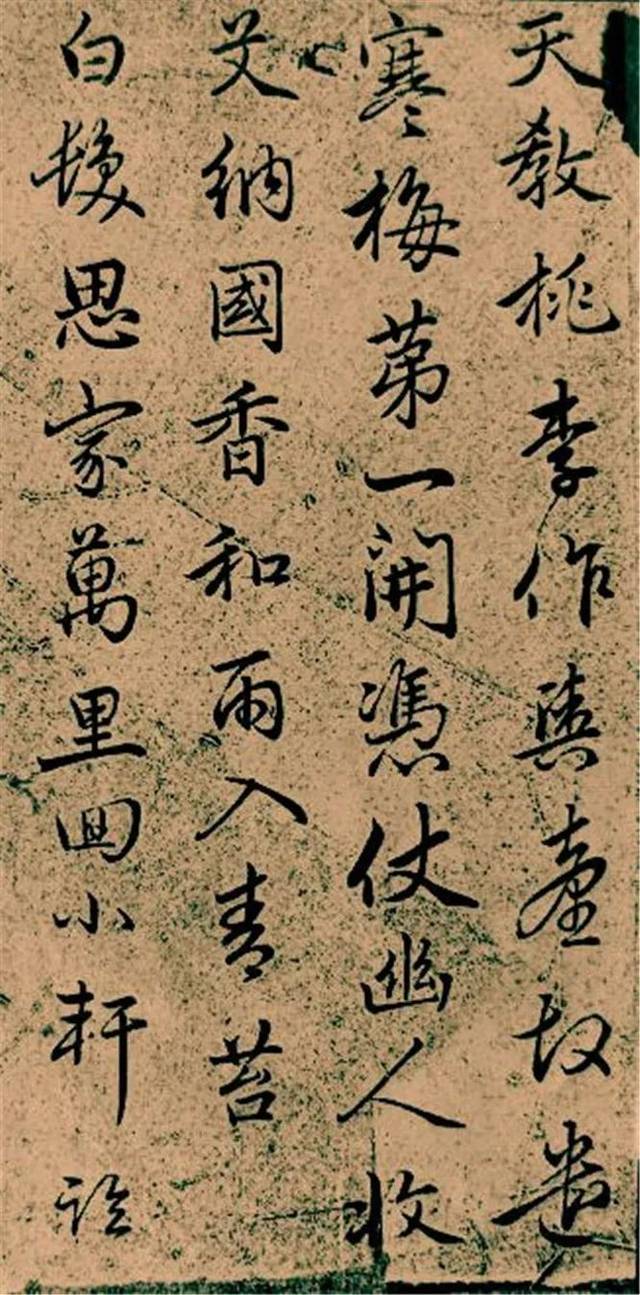 天教桃李作輿臺故遣
寒梅第一開憑仗幽人收
艾納國香和雨入青苔
白髮思家萬里回小軒